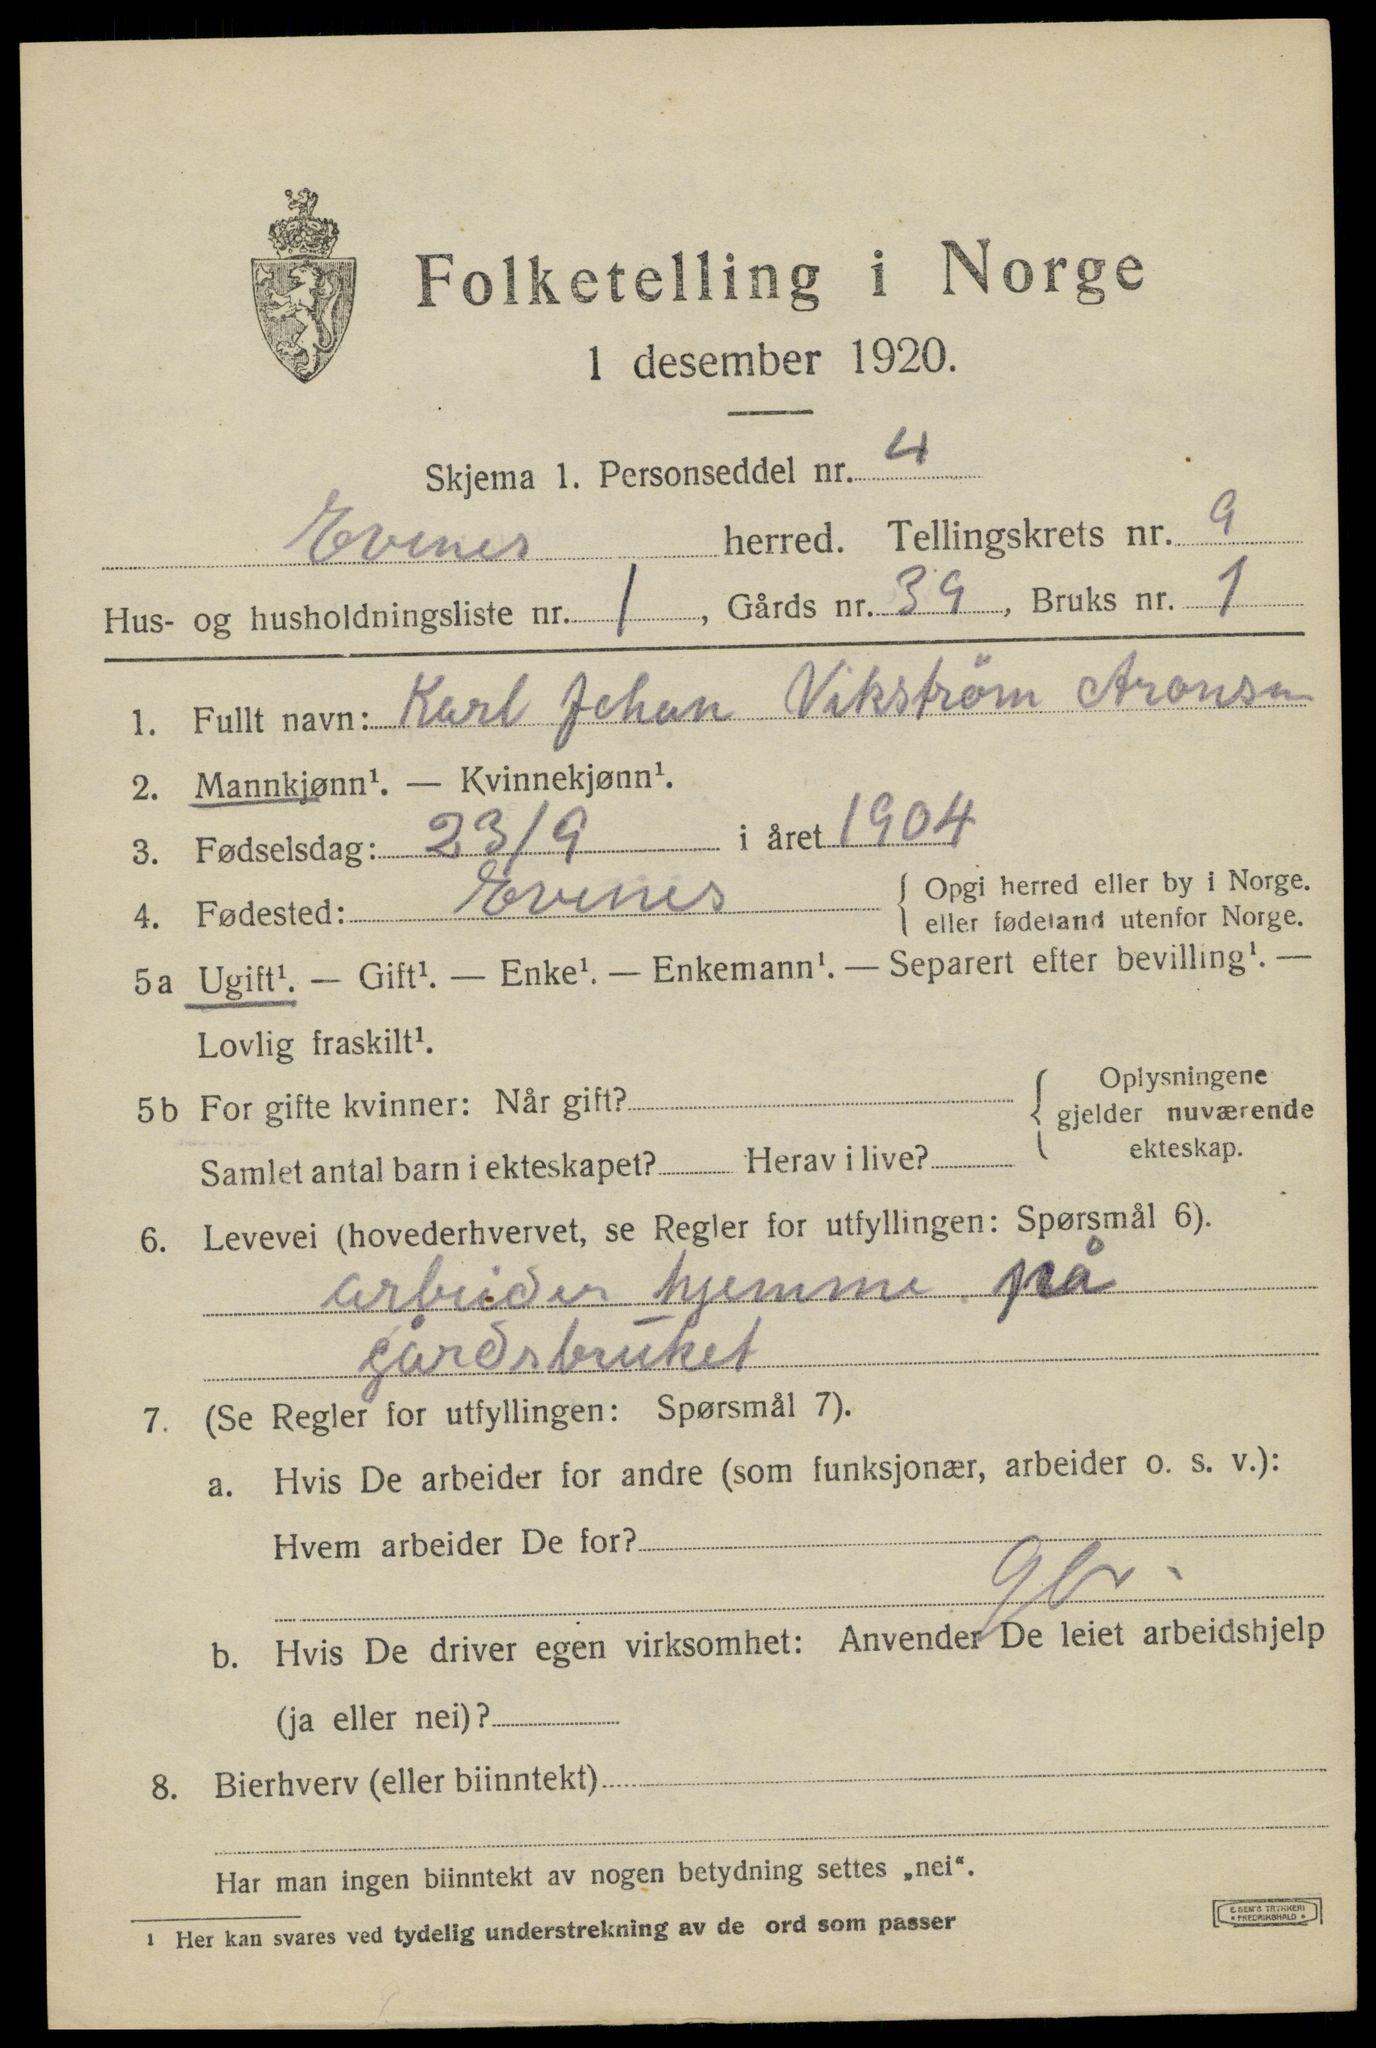 Folketelling i Norge
1 desember 1920.
Skjema 1. Personseddel nr. 4
Evenes herred. Tellingskrets nr. 9
Hus- og husholdningsliste nr. 1, Gårds nr. 39, Bruks nr. 1
1. Fullt navn: Karl Johan Vikström Aronsen
2. Mannkjønn¹. — Kvinnekjønn¹.
3. Fødselsdag: 23/9 i året 1904
4. Fødested: Evenes { Opgi herred eller by i Norge.
eller fødeland utenfor Norge.
5a Ugift¹. — Gift¹. — Enke¹. — Enkemann¹. — Separert efter bevilling¹. —
Lovlig fraskilt¹.
5b For gifte kvinner: Når gift? { Oplysningene
gjelder nuværende
ekteskap.
Samlet antal barn i ekteskapet? Herav i live?
6. Levevei (hovederhvervet, se Regler for utfyllingen: Spørsmål 6).
arbeider hjemme på
gårdsbruket
7. (Se Regler for utfyllingen: Spørsmål 7).
a. Hvis De arbeider for andre (som funksjonær, arbeider o. s. v.):
Hvem arbeider De for?
gbr.
b. Hvis De driver egen virksomhet: Anvender De leiet arbeidshjelp
(ja eller nei)?
8. Bierhverv (eller biinntekt)
Har man ingen biinntekt av nogen betydning settes „nei“.
1 Her kan svares ved tydelig understrekning av de ord som passer
E. SEM'S TRYKKERI
* FREDRIKSHALD *